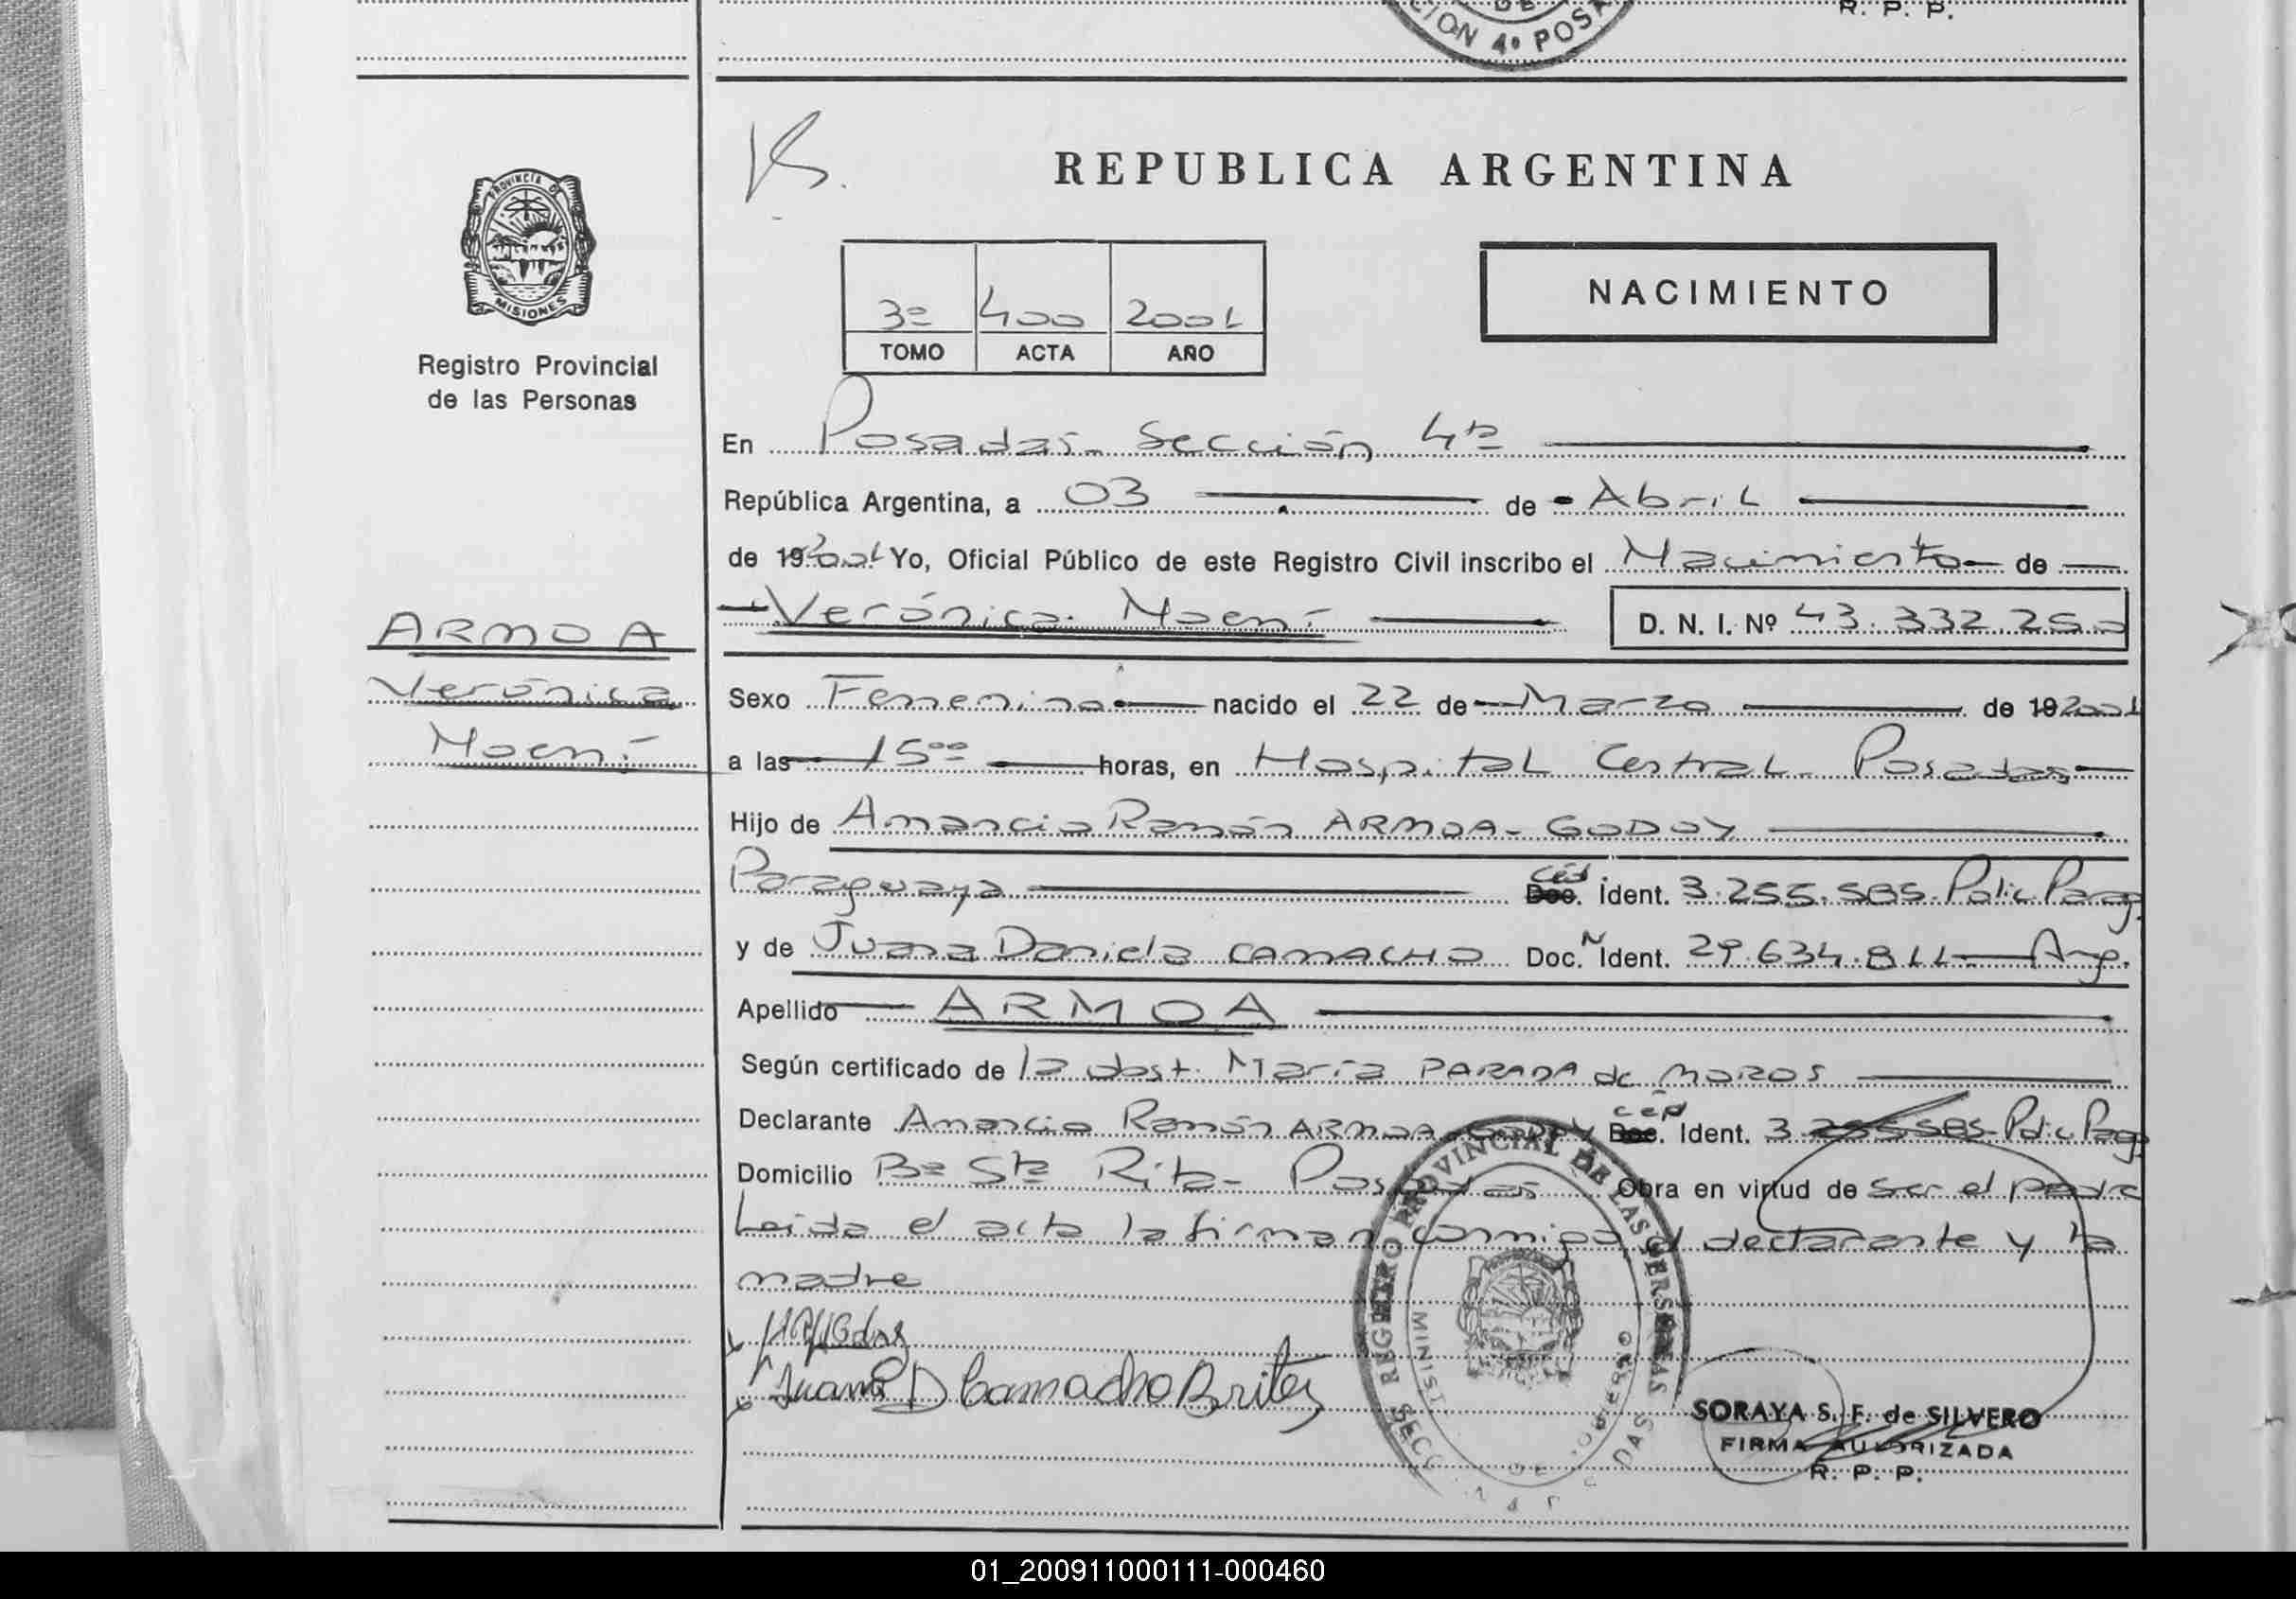 CION 4º POSA
DE
R. P. P.
PROVINCIA DE
MISIONES
Registro Provincial
de las Personas
REPUBLICA ARGENTINA
3º 400 2001
TOMO ACTA AÑO
NACIMIENTO
En Posadas - Sección 4ta
República Argentina, a 03 de Abril
de 192001 Yo, Oficial Público de este Registro Civil inscribo el Nacimiento de
Verónica Noemí D. N. I. Nº 43.332.250
ARMOA
Verónica
Noemí
Sexo Femenino nacido el 22 de Marzo de 192001
a las 15⁰⁰ horas, en Hospital Central - Posadas
Hijo de Amancio Ramón ARMOA - GODOY
Paraguaya Céd Doc. Ident. 3.255.585 Polic. Parag.
y de Juana Daniela CAMACHO Doc. N Ident. 29.634.811 - Arg.
Apellido ARMOA
Según certificado de la obst. María PARADA de MOROS
Declarante Amancio Ramón ARMOA - GODOY céd Doc. Ident. 3.255.585 Polic. Parag.
Domicilio Bº Sta Rita - Posadas Obra en virtud de ser el padre
Leída el acta la firman conmigo el declarante y la
madre
Juana D Camacho Britez
REGISTRO PROVINCIAL DE LAS PERSONAS
SORAYA S. F. de SILVERO
FIRMA AUTORIZADA
R. P. P.
01_200911000111-000460